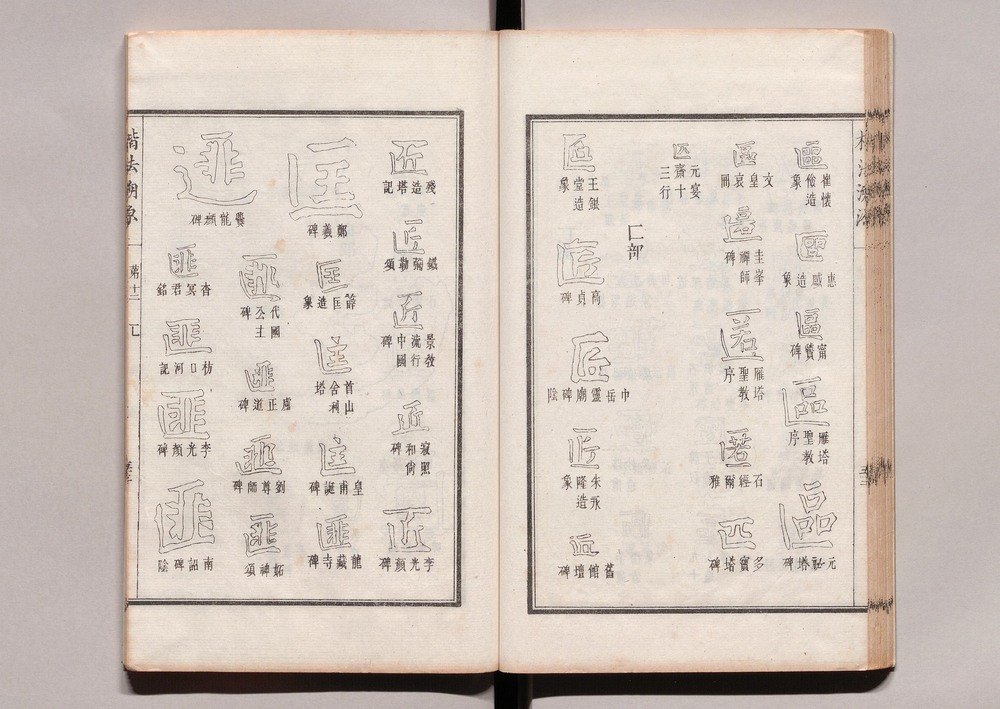 區 崔懷儉造象
區 惠感造象
區 甯贙碑
區 雁塔聖教序
區 元祕塔碑
區 文皇哀冊
匿 圭峯禪師碑
匿 雁塔聖教序
匿 石經爾雅
匹 多寶塔碑
匹 元宴齋十三行
匚部
匠 王銀堂造象
匠 高貞碑
匠 中岳靈廟碑陰
匠 朱永隆造象
匠 舊館壇碑
匠 殘造塔記
匠 鐵彌勒頌
匠 景教流行中國碑
匠 寂照和尙碑
匠 李光顏碑
匡 鄭羲碑
匡 薛匡造象
匡 首山舍利塔
匡 皇甫誕碑
匪 龍藏寺碑
匪 爨龍顏碑
匪 代國公主碑
匪 盧正道碑
匪 劉尊師碑
匪 妬神頌
匪 杳冥君銘
匪 枋口河記
匪 李光顏碑
匪 南詔碑陰
楷法溯源 第十二